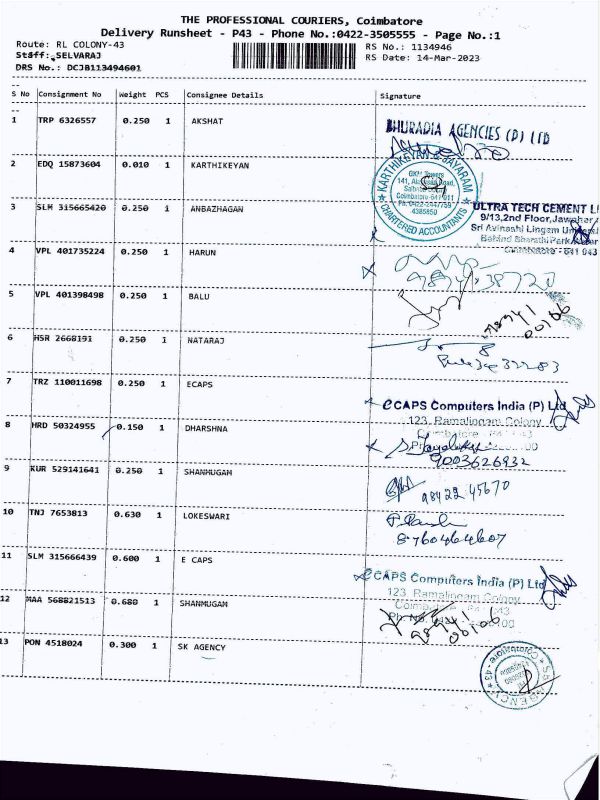 THE PROFESSIONAL COURIERS, Coimbatore
Delivery Runsheet - P43 - Phone No.:0422-3505555 - Page No.:1
Route: RL COLONY-43 RS No.: 1134946
Staff: SELVARAJ RS Date: 14-Mar-2023
DRS No.: DCJB113494601
S No Consignment No Weight PCS Consignee Details Signature
1 TRP 6326557 0.250 1 AKSHAT
BHURADIA AGENCIES (P) LTD
2 EDQ 15873604 0.010 1 KARTHIKEYAN
KARTHIKEYAN & JAYARAM
CHARTERED ACCOUNTANTS
4385850
3 SLM 315665420 0.250 1 ANBAZHAGAN
ULTRA TECH CEMENT
9/13,2nd Floor,
Sri Avinashi Lingam
Behind Bharathi Park
Coimbatore - 641 043
4 VPL 401735224 0.250 1 HARUN
5 VPL 401398498 0.250 1 BALU
98941
00166
6 HSR 2668191 0.250 1 NATARAJ
7 TRZ 110011698 0.250 1 ECAPS
eCAPS Computers India (P) Ltd
123, Ramalingam Colony
8 HRD 50324955 0.150 1 DHARSHNA
9003626932
9 KUR 529141641 0.250 1 SHANMUGAM
98422 45670
10 TNJ 7653813 0.630 1 LOKESWARI
8760464607
11 SLM 315666439 0.600 1 E CAPS
eCAPS Computers India (P) Ltd
123, Ramalingam Colony
12 MAA 568821513 0.680 1 SHANMUGAM
98941
00166
13 PON 4518024 0.300 1 SK AGENCY